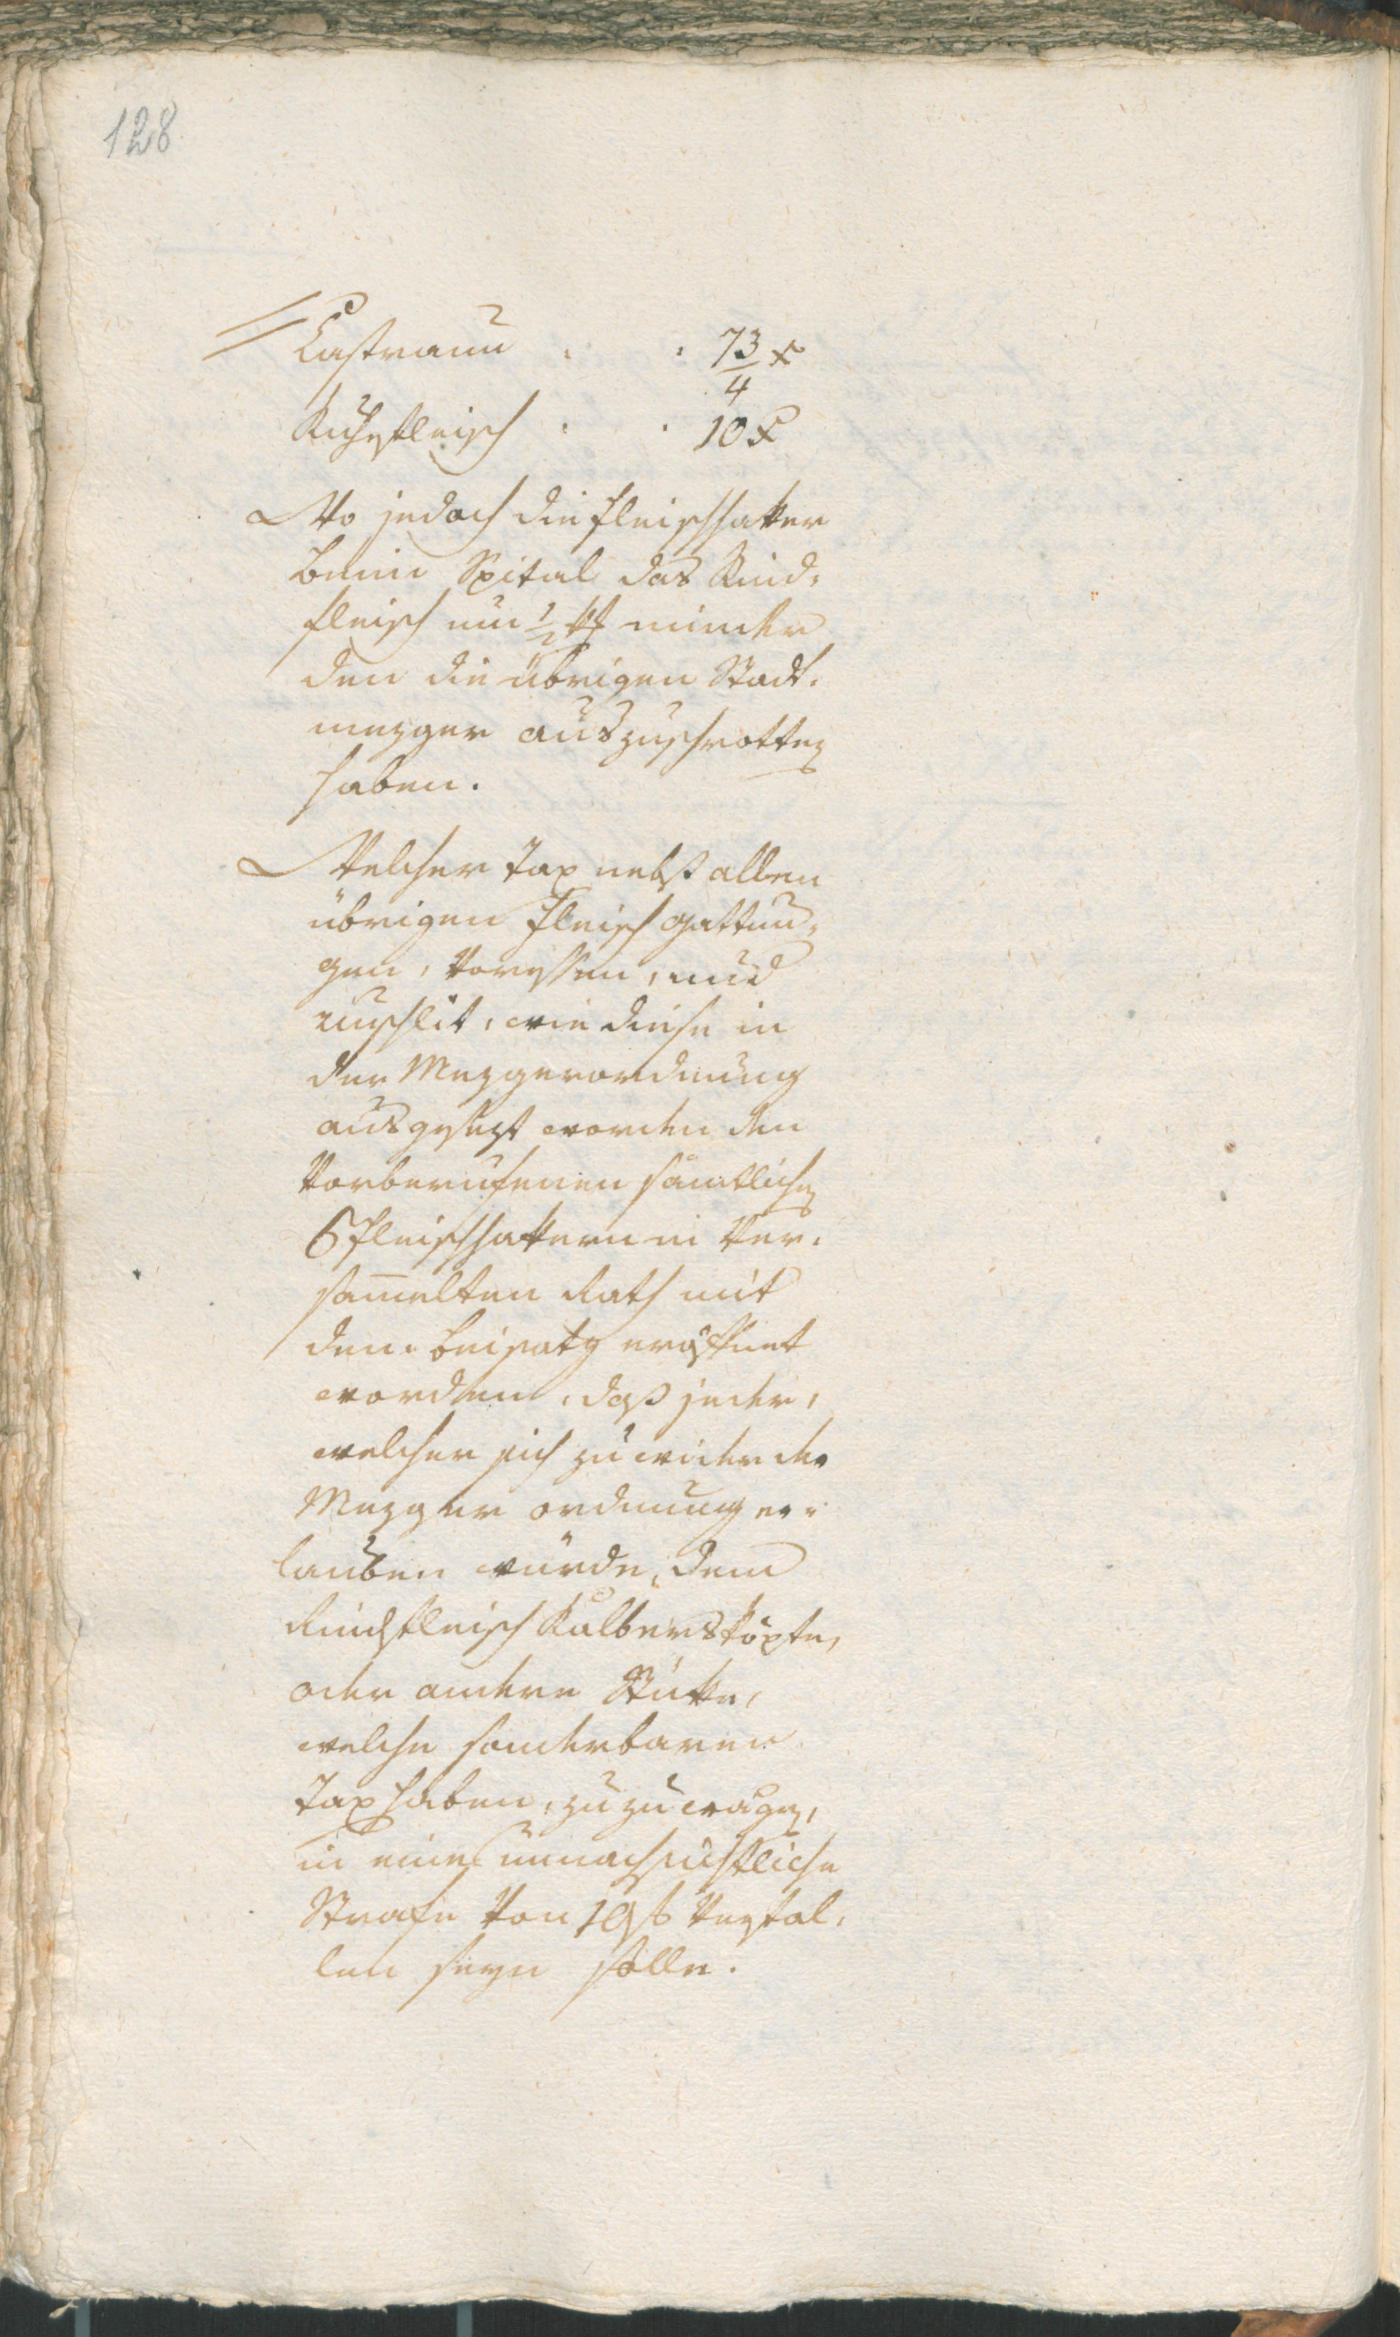 128
Castraun . . 7 3/4 x
Kuhefleisch . . 10 x
Wo jedoch die Fleischhaker
beim Spital das Rind-
fleisch um 1/2 xr minder
den die übrigen Stadt-
mezger auszuschrotten
haben.
Welcher Tax nebst allen
übrigen Fleisch gattun-
gen, Voressen, und
unschlit, wie diese in
der Mezgerordnung
ausgesezt worden den
Vorberufenen sämtlichen
6 Fleischhakern in Ver-
sam̅elten Rath mit
dem Beisatz eröffnet
worden, daß jeder,
welcher sich zuwider der
Mezger ordnung er-
lauben würde, dem
Rindfleisch Kälbersköpfe,
oder andere Stüke,
welche sonderbaren
Tax haben, zuzuwägen,
in eine unnachsichtliche
Strafe Von Verfal-
len seyn solle.